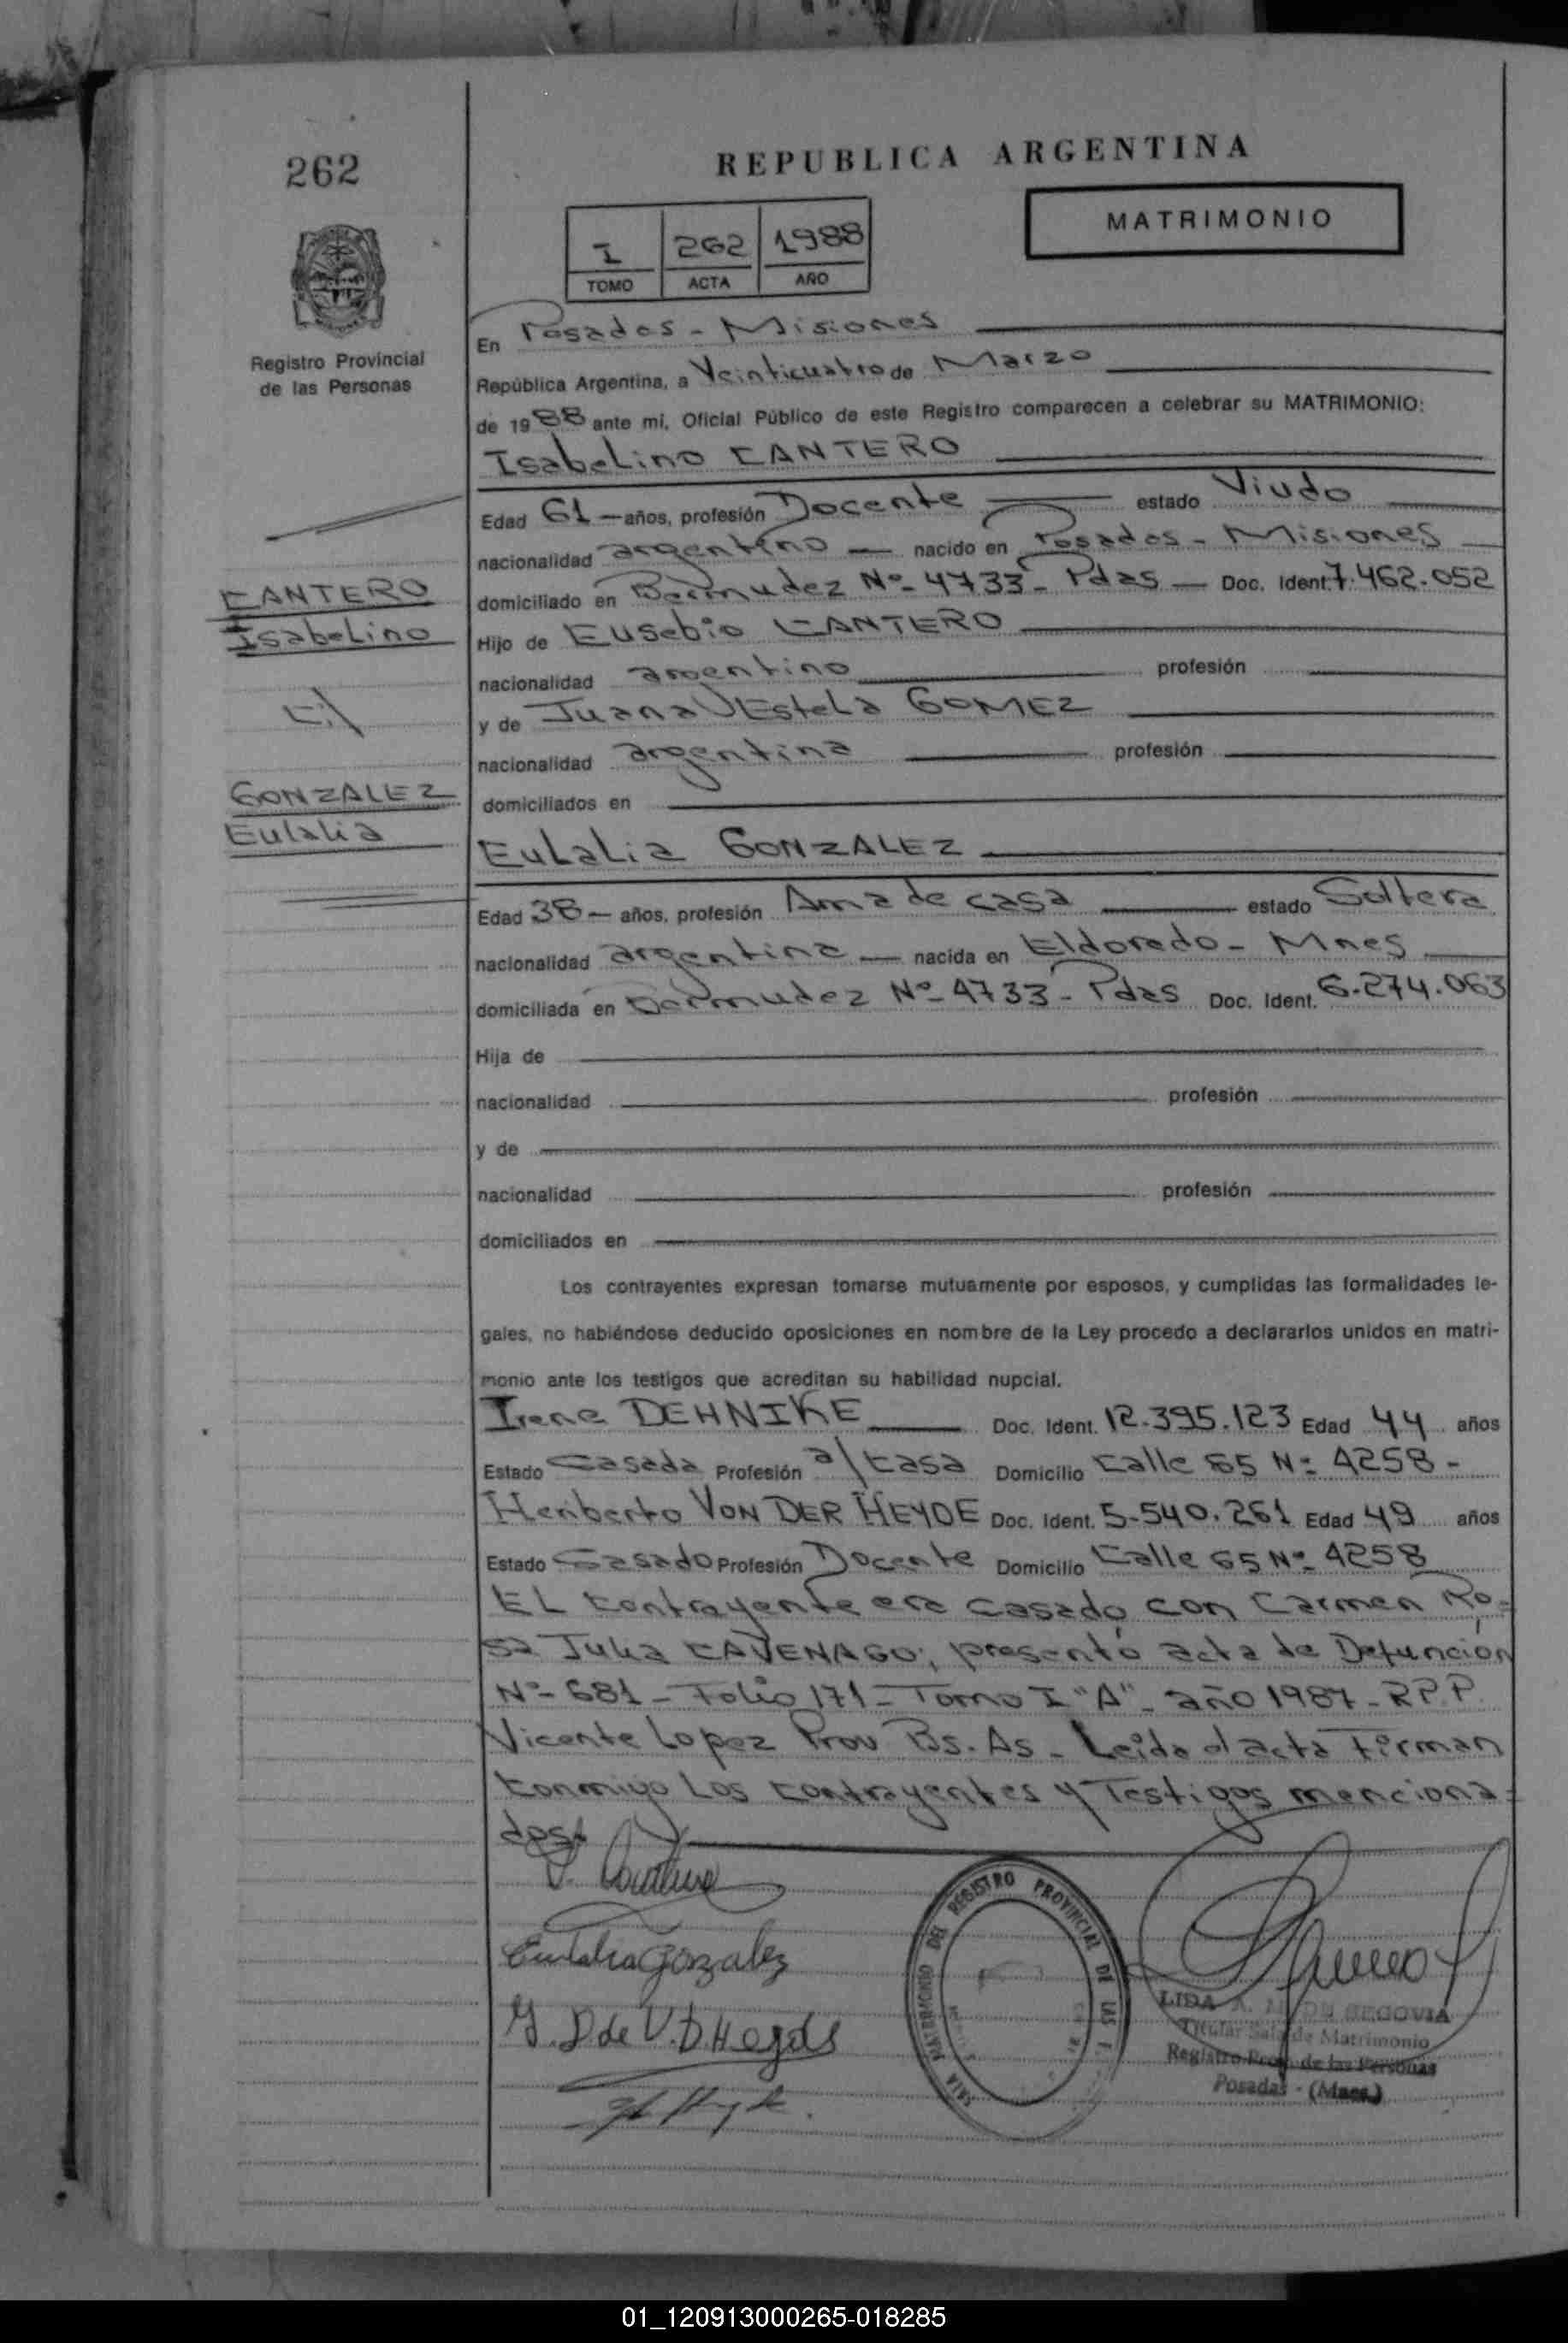 262
Registro Provincial
de las Personas
CANTERO
Isabelino
c/
GONZALEZ
Eulalia
REPUBLICA ARGENTINA
MATRIMONIO
I 262 1988
TOMO ACTA AÑO
En Posadas - Misiones
República Argentina, a Veinticuatro de Marzo
de 1988 ante mí, Oficial Público de este Registro comparecen a celebrar su MATRIMONIO:
Isabelino CANTERO
Edad 61 - años, profesión Docente estado Viudo
nacionalidad argentino nacido en Posadas - Misiones
domiciliado en Bermudez Nº 4733 - Pdas - Doc. Ident. 7.462.052
Hijo de Eusebio CANTERO
nacionalidad argentino profesión
y de Juana Estela GOMEZ
nacionalidad argentina profesión
domiciliados en
Eulalia GONZALEZ
Edad 38 - años, profesión Ama de casa estado Soltera
nacionalidad argentina nacida en Eldorado - Mnes
domiciliada en Bermudez Nº 4733 - Pdas Doc. Ident. 6.274.063
Hija de
nacionalidad profesión
y de
nacionalidad profesión
domiciliados en
Los contrayentes expresan tomarse mutuamente por esposos, y cumplidas las formalidades le-
gales, no habiéndose deducido oposiciones en nombre de la Ley procedo a declararlos unidos en matri-
monio ante los testigos que acreditan su habilidad nupcial.
Irene DEHNIKE Doc. Ident. 12.395.123 Edad 44 años
Estado Casada Profesión a/casa Domicilio Calle 65 Nº 4258 -
Heriberto VON DER HEYDE Doc. Ident. 5.540.261 Edad 49 años
Estado Casado Profesión Docente Domicilio Calle 65 Nº 4258
EL contrayente era casado con Carmen Ro-
sa Julia CAVENAGO; presentó acta de Defunción
Nº 681 - Folio 171 - Tomo I "A" - año 1987 - R.P.P.
Vicente Lopez Prov Bs. As - Leida el acta firman
conmigo Los contrayentes y Testigos menciona-
dos.
Eulalia Gonzalez
SALA MATRIMONIO DEL REGISTRO PROVINCIAL DE LAS P.
LIDA A. SEGOVIA
Titular Sala de Matrimonio
Registro Prov. de las Personas
Posadas - (Mnes.)
01_120913000265-018285